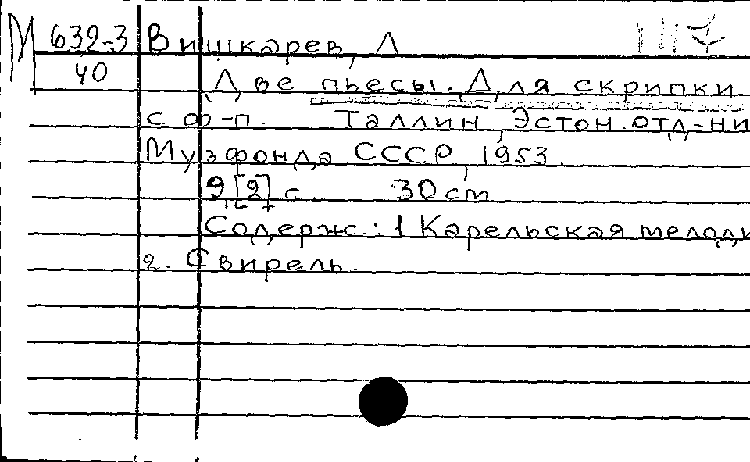 М 632-3 Вишкарев, Л
40 Две пьесы. Для скрипки
с ф-п. Таллин, Эстон. отд-ни
Музфонда СССР, 1953.
9 [2] с. 30 cm
Содерж: 1 Карельская мелоди
2. Свирель.